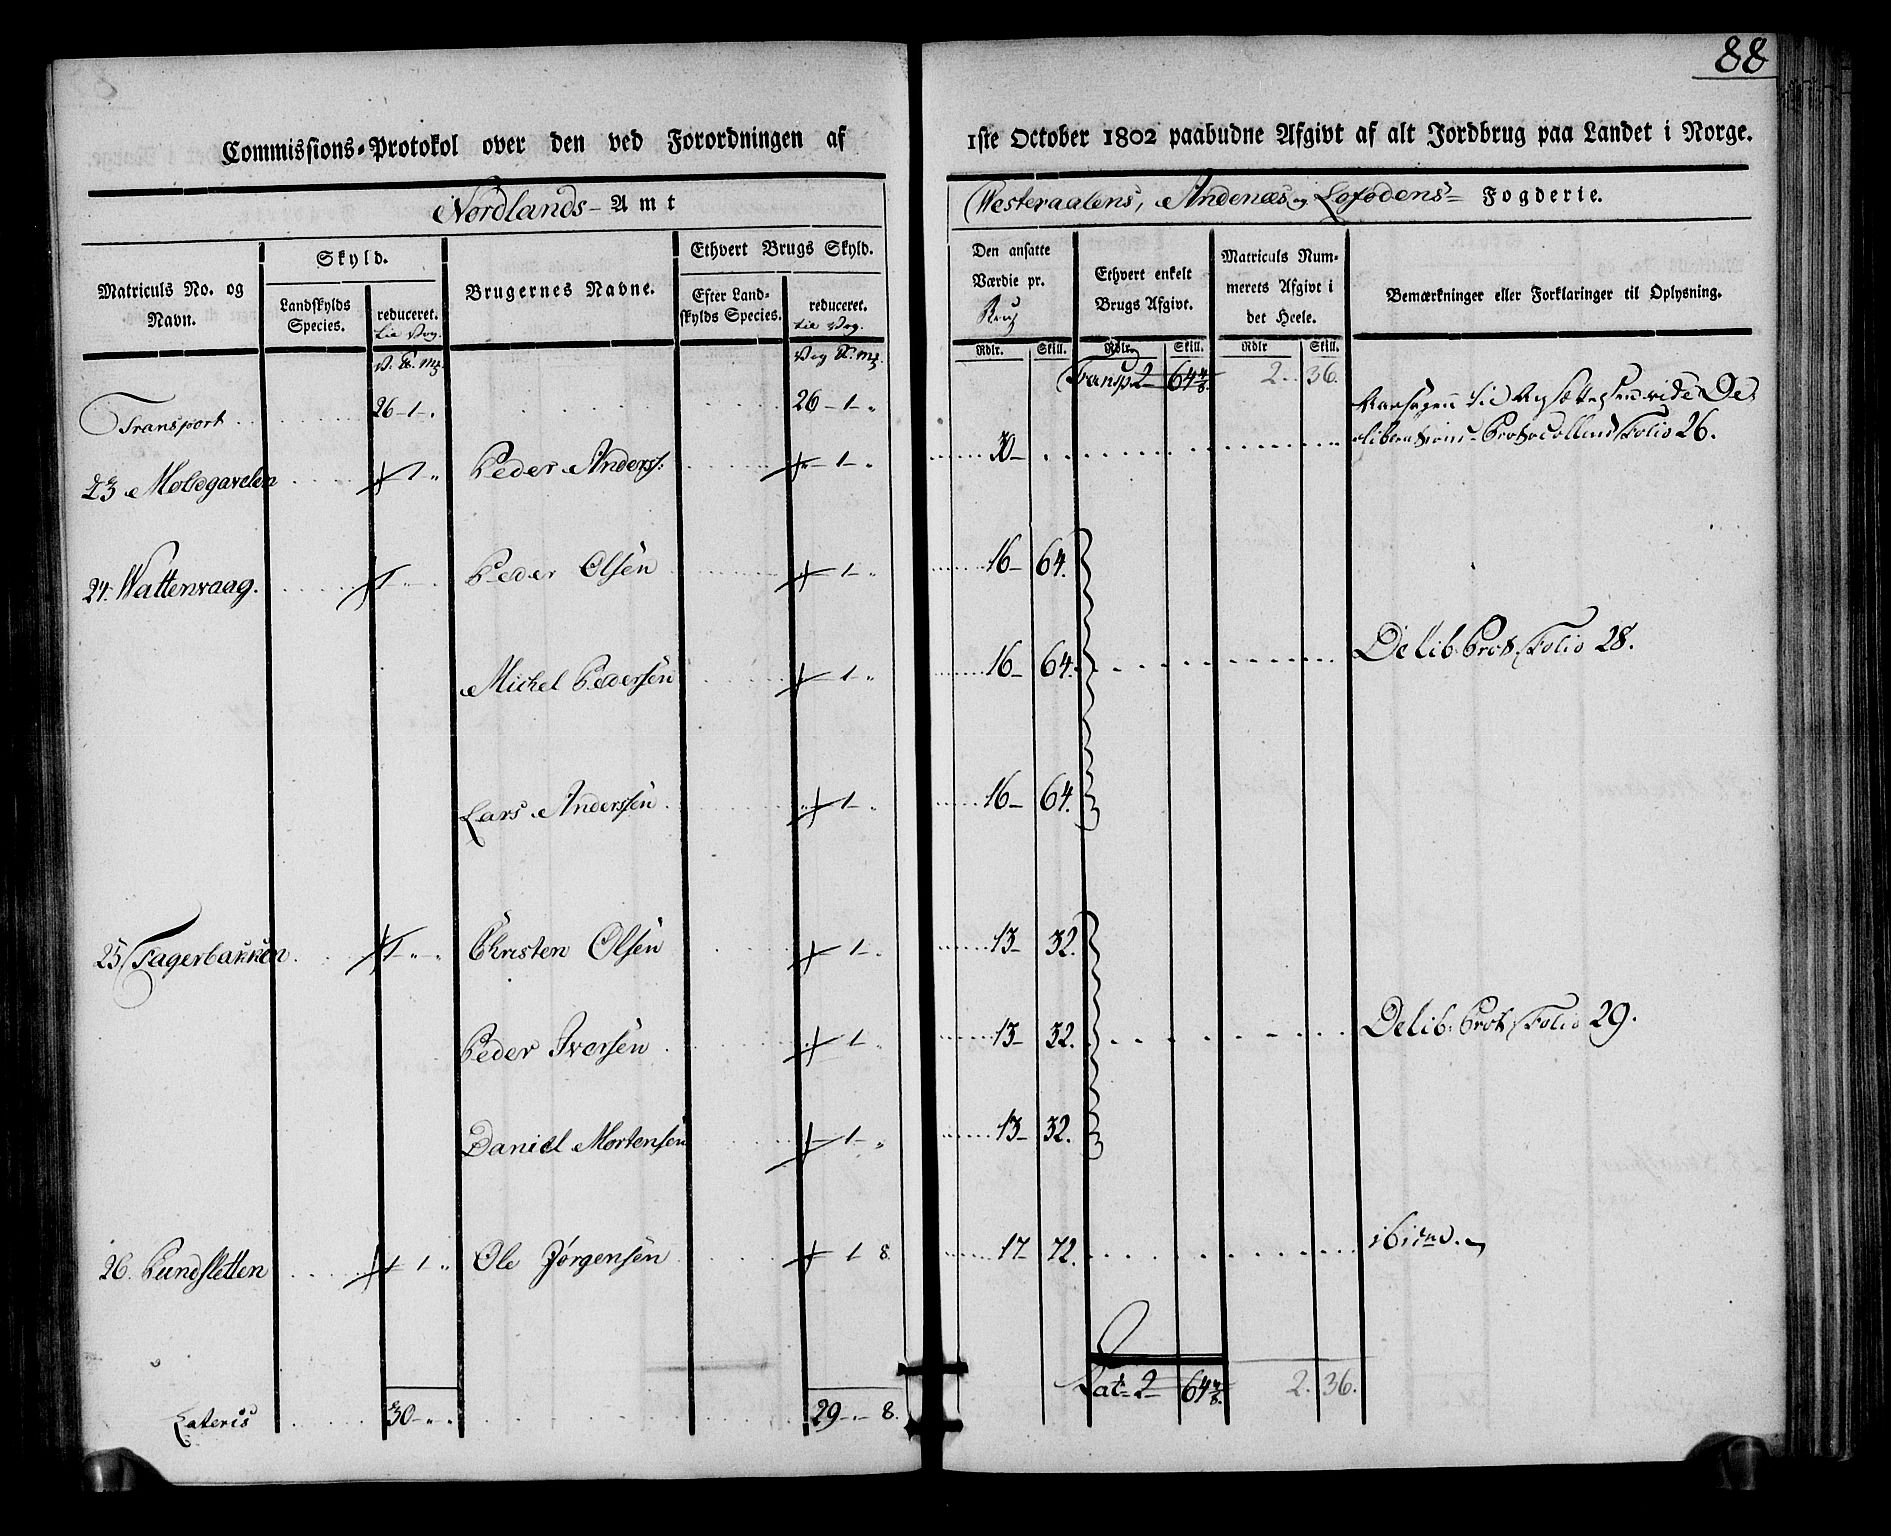 88
Commissions-Protokol over den ved Forordningen af 1ste October 1802 paabudne Afgivt af alt Jordbrug paa Landet i Norge.
Nordlands- Amt
Westeraalens, Andenæs og Lofodens- Fogderie.
Matriculs No. og Navn.
Skyld.
Landskylds Species.
reduceret. til Vog.
Brugernes Navne.
Ethvert Brugs Skyld.
Efter Landskylds Species.
reduceret. til Vog.
Den ansatte Værdie pr.
Ethvert enkelt Brugs Afgivt.
Matriculs Nummerets Afgivt i det Heele.
Bemærkninger eller Forklaringer til Oplysning.
Rdlr. Skill. Rdlr. Skill. Rdlr Skill.
Transport 26-1-. 26-1-„ Transp 2 64 4/8. 2. 36.
23 Moldegavelen 1 „ Peder Anders: 1-„ 30-
Aarsagen til Nysættelsen vide Deliberations-Protocollens Folio 26.
24. Wattenvaag. 1 Peder Olsen 1-„ 16- 64.
Michel Pedersen 1-„ 16- 64. Delib. Prot. Folio 28.
Lars Anderssen 1-„ 16- 64.
25 Fagerbakken 1-„-„ Christen Olsen 1-„ 13- 32.
Peder Iversen 1-„ 13- 32. Delib. Prot. Folio 29.
Daniel Mortensen 1-„ 13- 32.
26. Pundsletten 1 1 „ Ole Jørgensen 1 8. 17- 72. ibid.
Lateris 30-„-. 29-.-8. Lat- 2- 64 4/8. 2. 36.